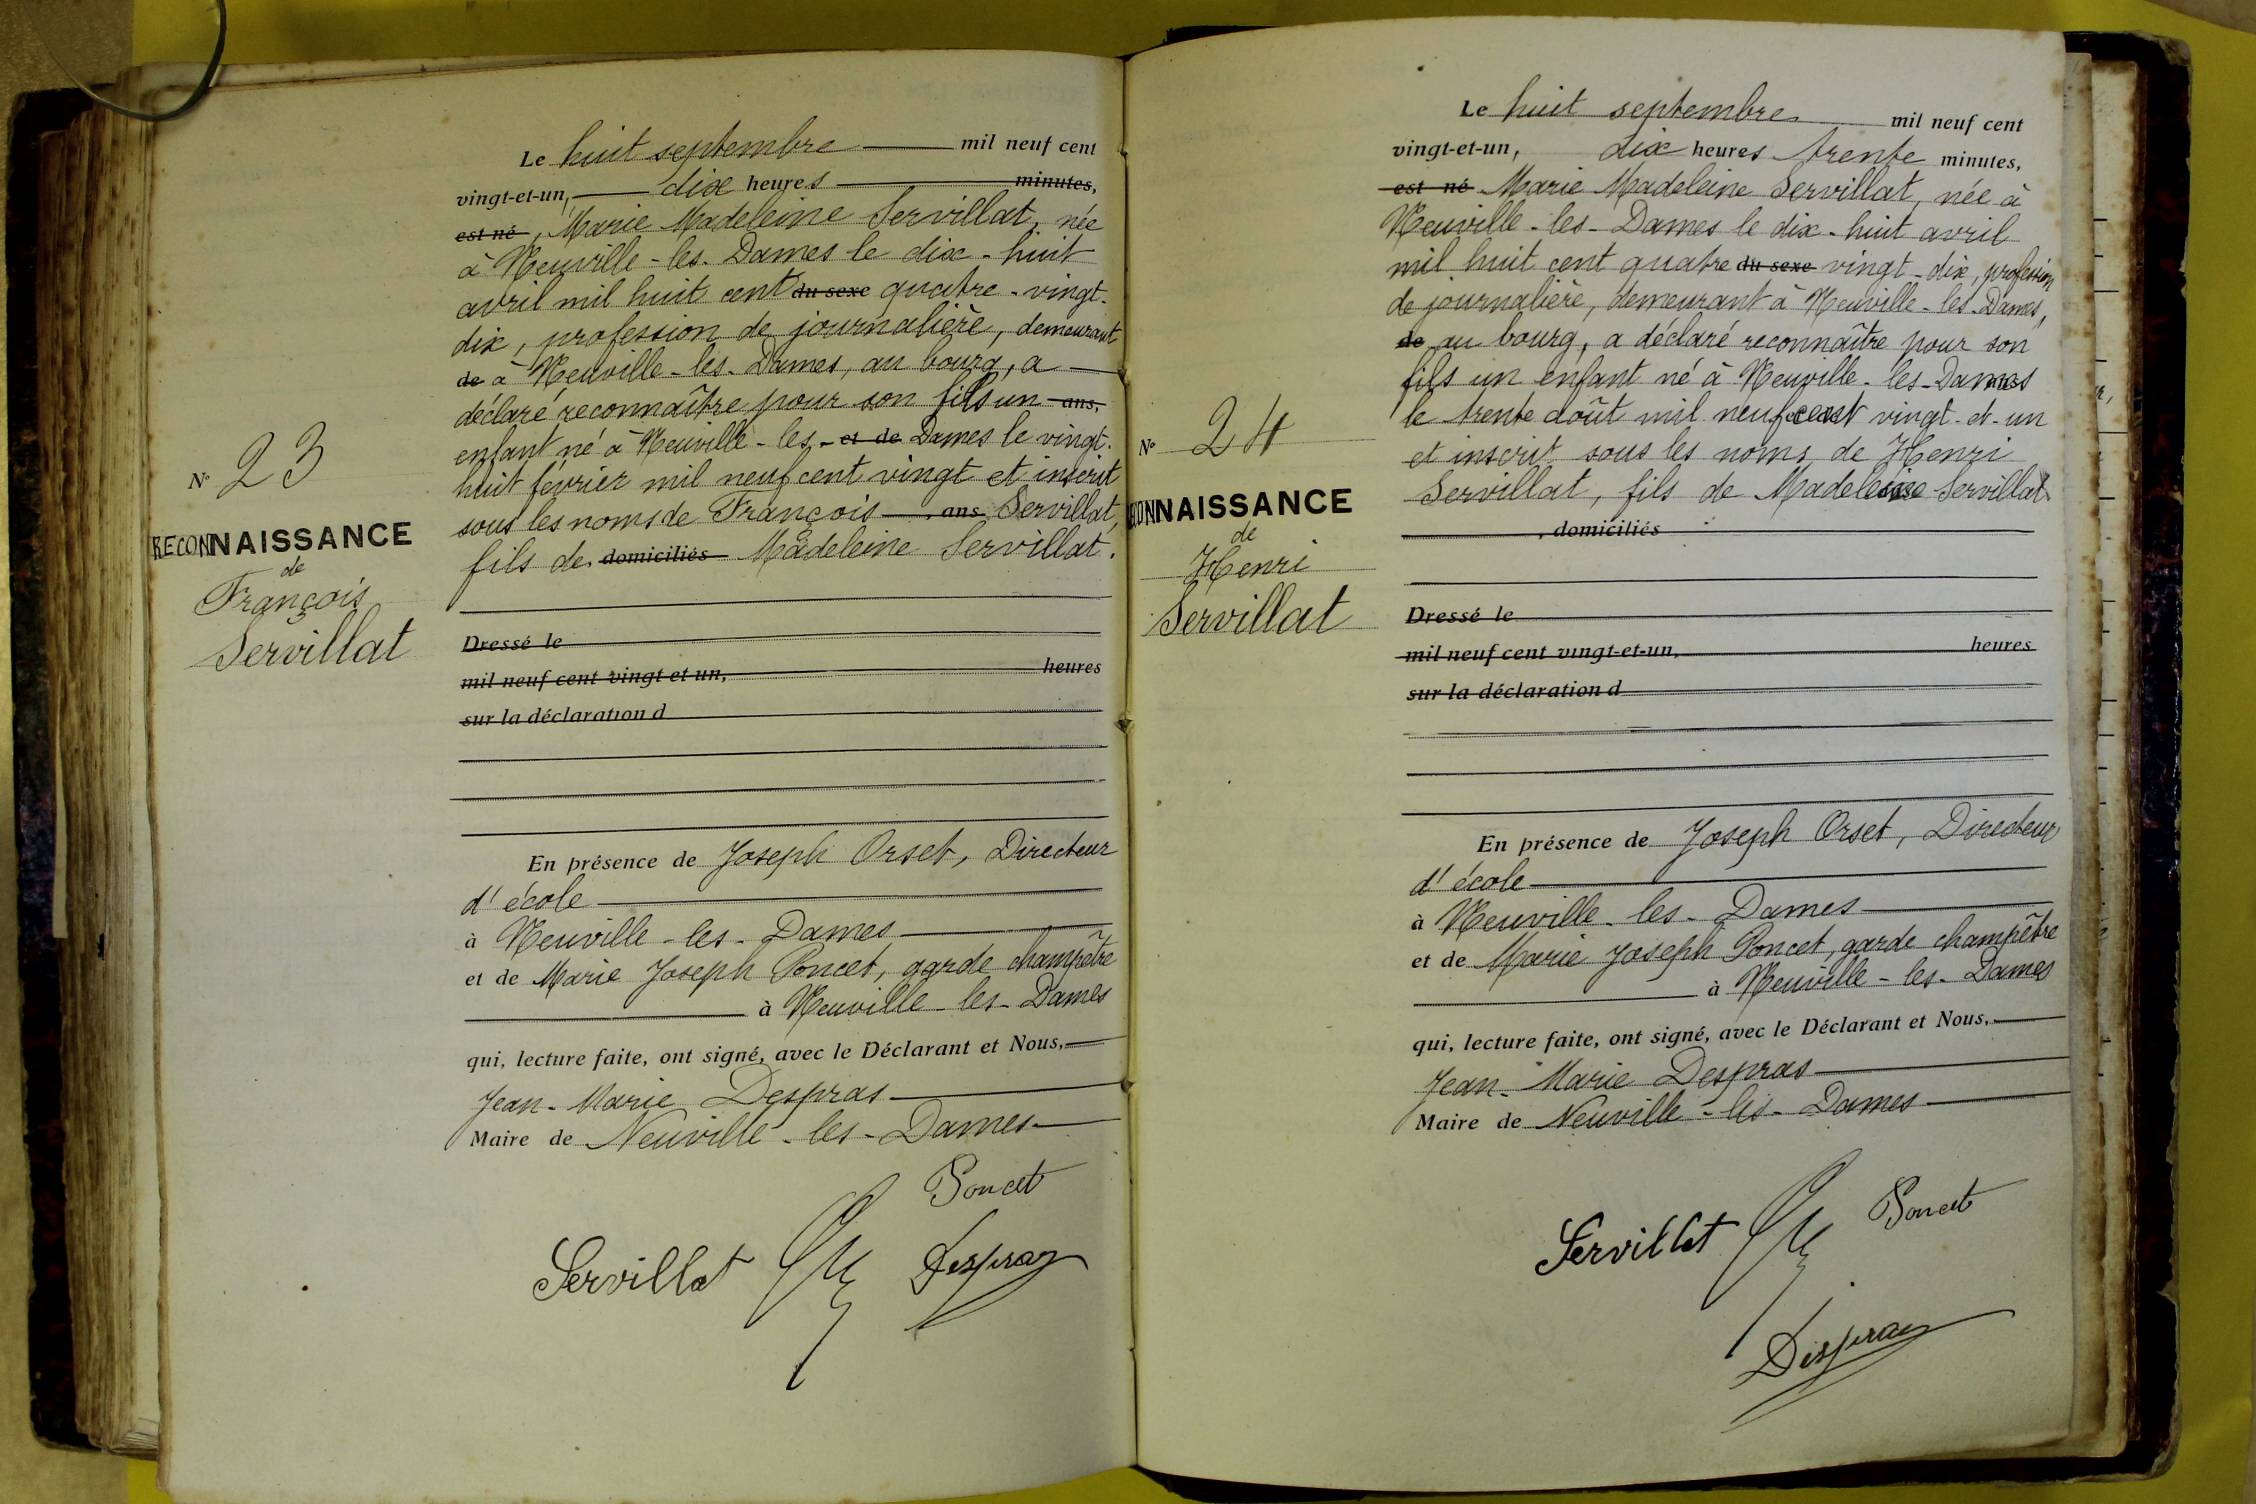 Le huit septembre mil neuf cent
vingt-et-un, dix heures minutes,
est né, Marie Madeleine Servillat, née
à Neuville-les-Dames le dix-huit
avril mil huit cent du sexe quatre-vingt-
dix, profession de journalière, demeurant
de à Neuville-les-Dames, au bourg, a
déclaré reconnaître pour son fils un ans,
enfant né à Neuville-les- et de Dames le vingt-
huit février mil neuf cent vingt et inscrit
sous les noms de François , ans Servillat,
fils de domiciliés Madeleine Servillat.
N° 23
RECONNAISSANCE
de
François
Servillat
Dressé le
mil neuf cent vingt-et-un, heures
sur la déclaration d
En présence de Joseph Orset, Directeur
d'école
à Neuville-les-Dames
et de Marie Joseph Poncet, garde champêtre
à Neuville-les-Dames
qui, lecture faite, ont signé, avec le Déclarant et Nous,
Jean-Marie Despras
Maire de Neuville-les-Dames
Poncet
Servillat Despras
Le huit septembre mil neuf cent
vingt-et-un, dix heures trente minutes,
est né Marie Madeleine Servillat, née à
Neuville-les-Dames le dix-huit avril
mil huit cent quatre du sexe vingt-dix, profession
de journalière, demeurant à Neuville-les-Dames,
de au bourg, a déclaré reconnaître pour son
fils un enfant né à Neuville-les-Dames
le trente août mil neuf cent vingt-et-un
et inscrit sous les noms de Henri
Servillat, fils de Madeleine Servillat
, domiciliés
N° 24
RECONNAISSANCE
de
Henri
Servillat
Dressé le
mil neuf cent vingt-et-un, heures
sur la déclaration d
En présence de Joseph Orset, Directeur
d'école
à Neuville-les-Dames
et de Marie Joseph Poncet, garde champêtre
à Neuville-les-Dames
qui, lecture faite, ont signé, avec le Déclarant et Nous,
Jean-Marie Despras
Maire de Neuville-les-Dames
Servillat Poncet
Despras